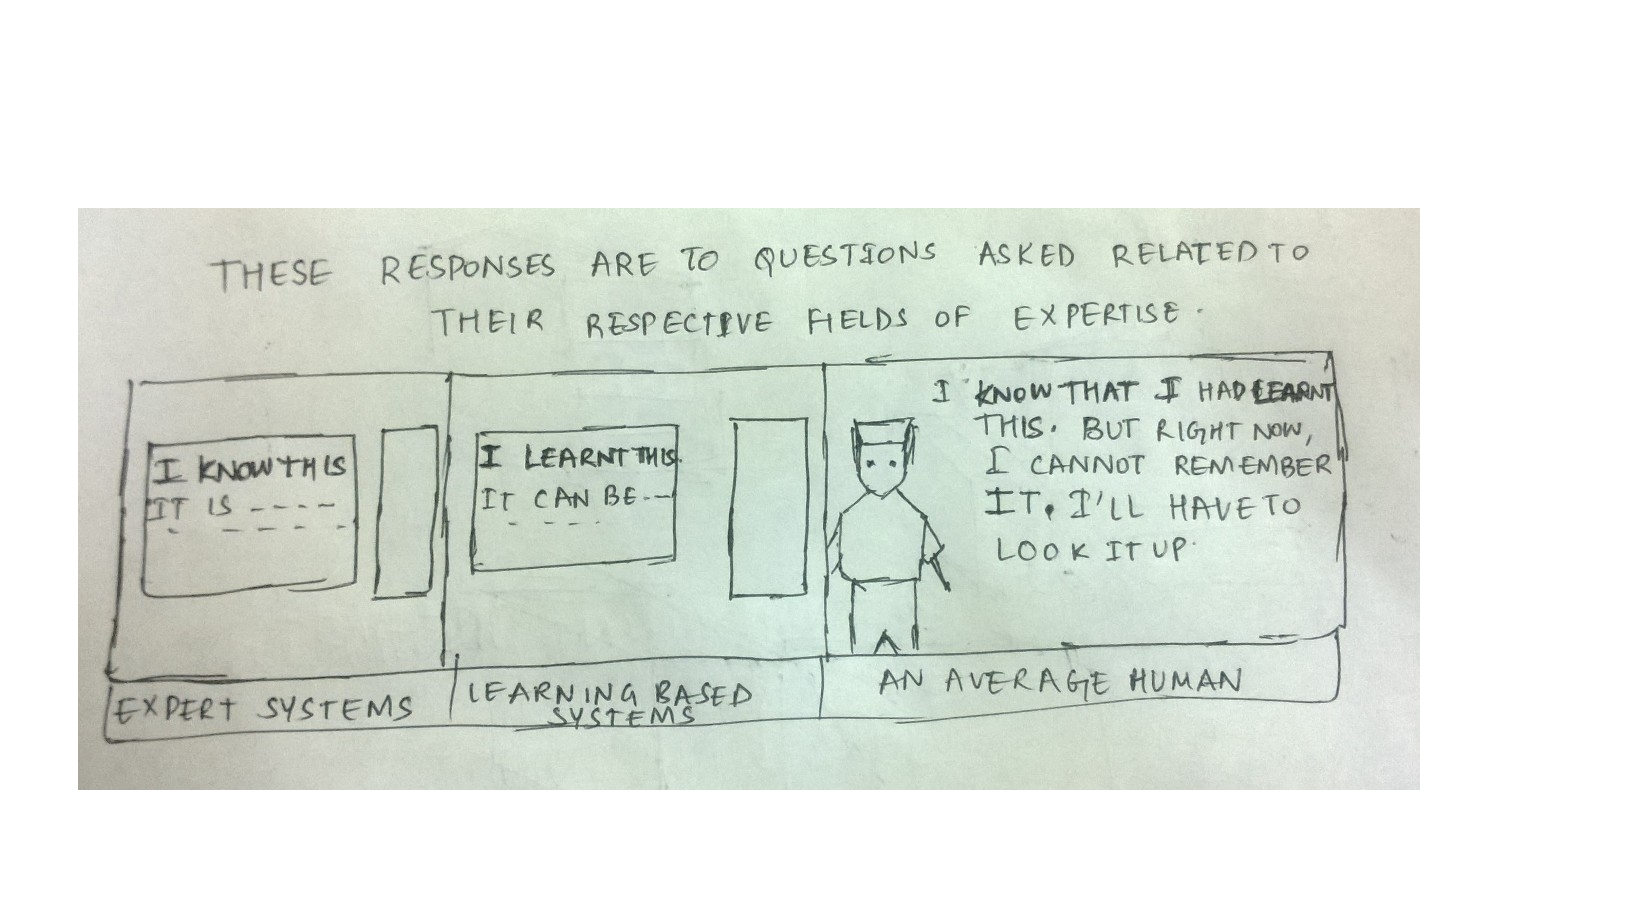 THESE RESPONSES ARE TO QUESTIONS ASKED RELATED TO
THEIR RESPECTIVE FIELDS OF EXPERTISE.
I KNOW THIS
IT IS -----
- - - - -
I LEARNT THIS.
IT CAN BE---
- - - -
I KNOW THAT I HAD LEARNT
THIS. BUT RIGHT NOW,
I CANNOT REMEMBER
IT. I'LL HAVE TO
LOOK IT UP.
EXPERT SYSTEMS
LEARNING BASED
SYSTEMS
AN AVERAGE HUMAN